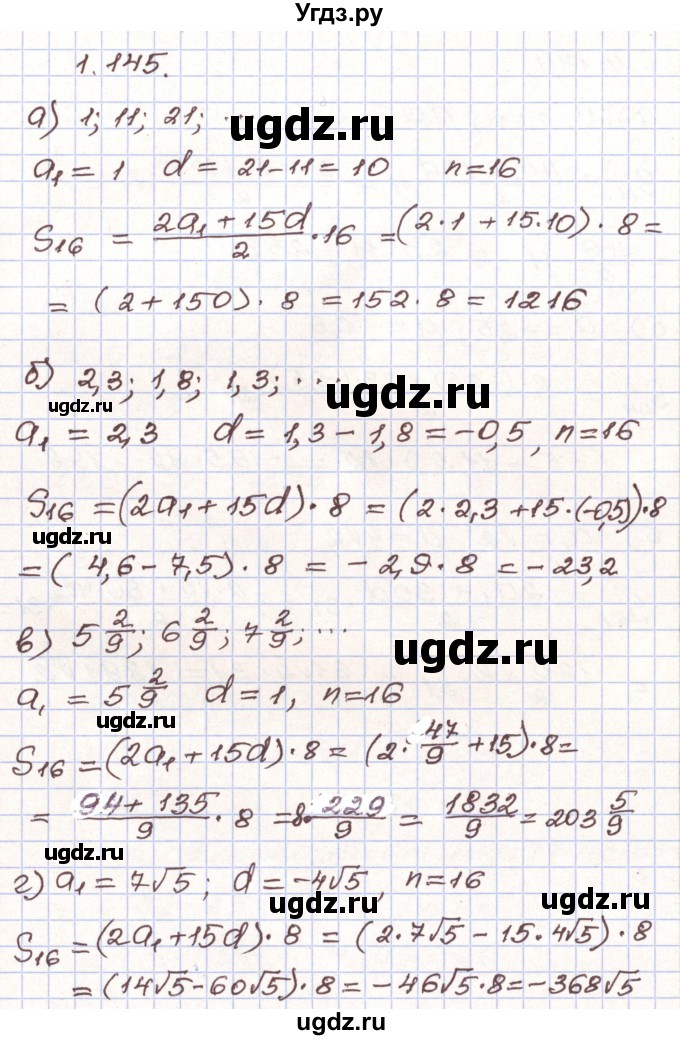 Угдз.ру
1.145.
а) 1; 11; 21; ...
ugdz.ru
a₁ = 1 d = 21-11 = 10 n=16
S₁₆ = (2a₁ + 15d)/2 · 16 = (2·1 + 15·10) · 8 =
= (2 + 150) · 8 = 152 · 8 = 1216
б) 2,3; 1,8; 1,3; ...
ugdz.ru
ugdz.ru
a₁ = 2,3 d = 1,3 - 1,8 = -0,5, n=16
S₁₆ = (2a₁ + 15d) · 8 = (2 · 2,3 + 15 · (-0,5)) · 8
ugdz.ru
= (4,6 - 7,5) · 8 = -2,9 · 8 = -23,2
в) 5 2/9; 6 2/9; 7 2/9; ...
ugdz.ru
a₁ = 5 2/9 d = 1, n=16
ugdz.ru
S₁₆ = (2a₁ + 15d) · 8 = (2 · 47/9 + 15) · 8 =
= (94 + 135)/9 · 8 = 8 · 229/9 = 1832/9 = 203 5/9
г) a₁ = 7√5; d = -4√5, n=16
ugdz.ru
ugdz.ru
S₁₆ = (2a₁ + 15d) · 8 = (2·7√5 - 15·4√5) · 8
= (14√5 - 60√5) · 8 = -46√5 · 8 = -368√5
ugdz.ru